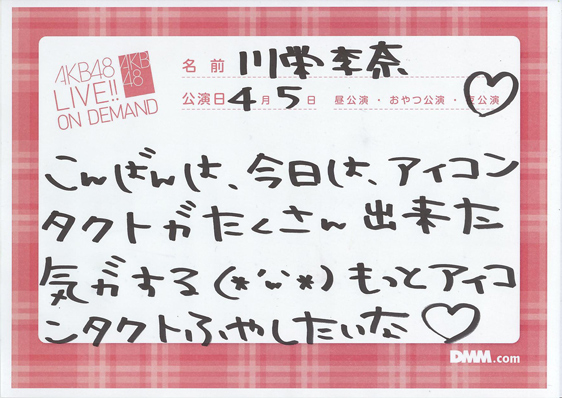 AKB48
LIVE!!
ON DEMAND
AKB
48
名前 川栄李奈
公演日 4月5日 昼公演・おやつ公演・夜公演
こんばんは、今日は、アイコン
タクトがたくさん出来た
気がする(*'ω'*)もっとアイコ
ンタクトふやしたいな♡
DMM.com